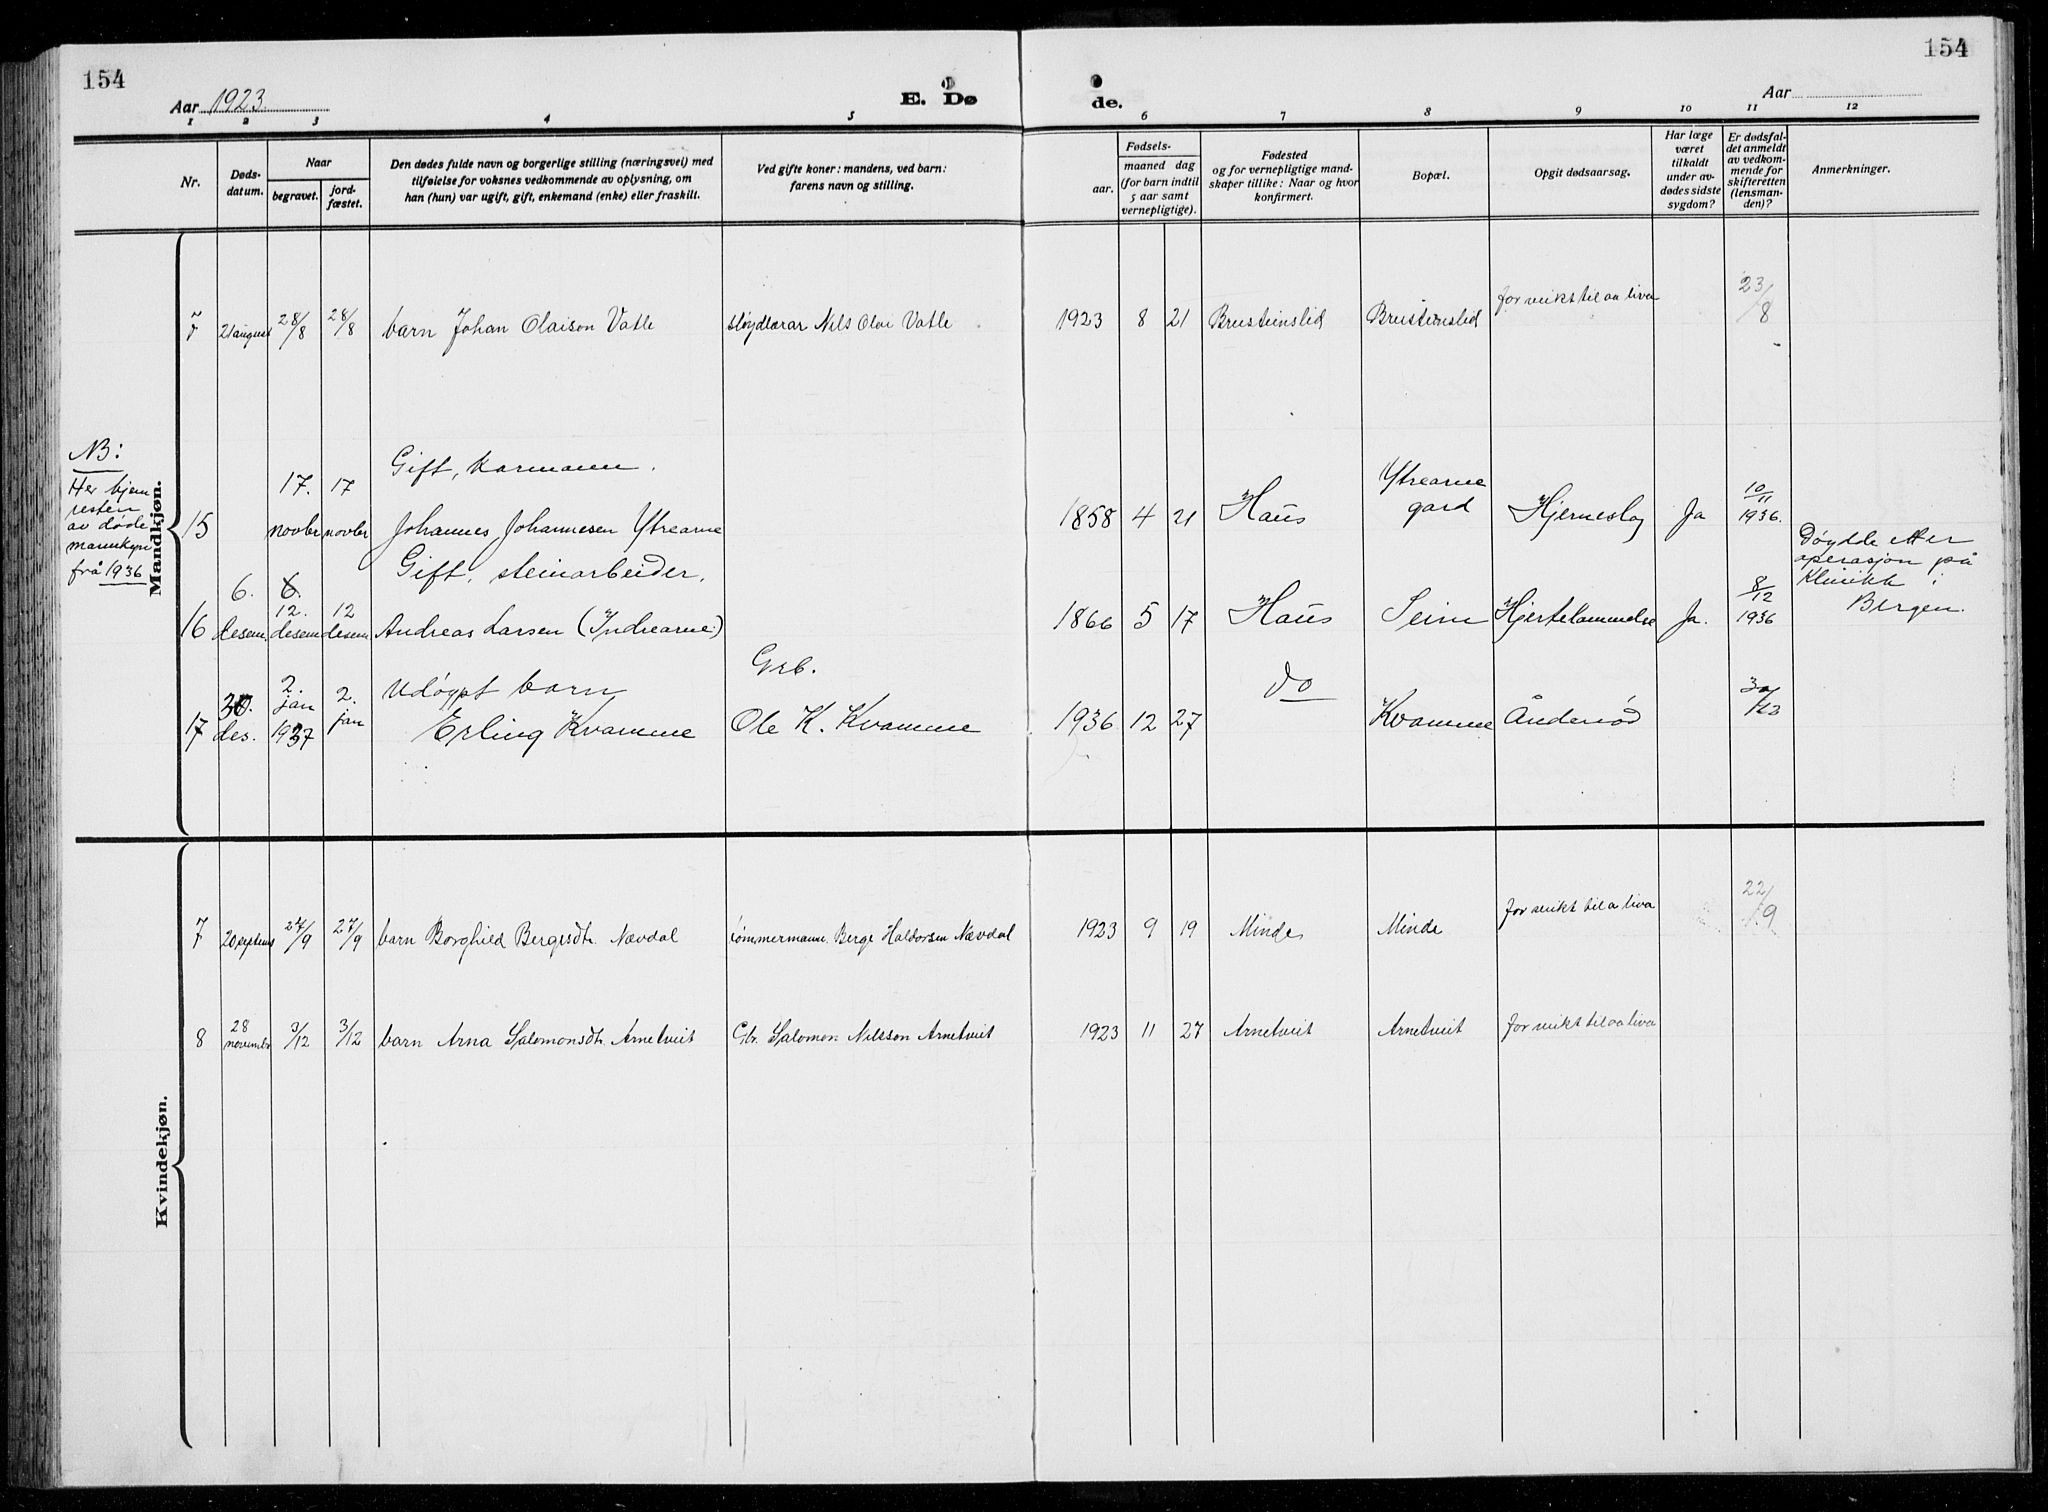 154
154
Aar 1923
E. Dø
de.
Aar
1 2 3 4 5 6 7 8 9 10 11 12
Nr.
Døds-
datum.
Naar
begravet.
jord-
fæstet.
Den dødes fulde navn og borgerlige stilling (næringsvei) med
tilføielse for voksnes vedkommende av oplysning, om
han (hun) var ugift, gift, enkemand (enke) eller fraskilt.
Ved gifte koner: mandens, ved barn:
farens navn og stilling.
Fødsels-
aar.
maaned dag
(for barn indtil
5 aar samt
vernepligtige).
Fødested
og for vernepligtige mand-
skaper tillike: Naar og hvor
konfirmert.
Bopæl.
Opgit dødsaarsag.
Har læge
været
tilkaldt
under av-
dødes sidste
sygdom?
Er dødsfal-
det anmeldt
av vedkom-
mende for
skifteretten
(lensman-
den)?
Anmerkninger.
Mandkjøn.
21 august 28/8 28/8 barn Johan Olaison Vatle sløydlærar Nils Olai Vatle 1923 8 21 Brusteinslid Brusteinslid for veikt til aa liva 23/8
NB:
Her kjem
resten
av døde
mannkyn
frå 1936
Gift, karmann.
15 17. novbr 17 novbr Johannes Johannesen Ytrearne 1858 4 21 Haus Ytrearne gard Hjerneslag Ja 10/11 1936.
Gift, steinarbeider.
16 6. desem 12. desem 12 desem Andreas Larsen (Indrearne) 1866 5 17 Haus Seim Hjertelammelse Ja. 8/12 1936
Døydde etter
operasjon på
Klinikk i
Bergen.
Udøypt barn Grb.
17 30. des. 2. jan 1937 2. jan Erling Kvamme Ole K. Kvamme 1936 12 27 do Kvamme Åndenød 30/12
Kvindekjøn.
7 20 septemb 27/9 27/9 barn Borghild Bergesdtr. Nævdal tømmermann Berge Haldorsen Nævdal 1923 9 19 Minde Minde for veikt til a liva 22/9
8 28 novembr 3/12 3/12 barn Arna Salomonsdtr. Arnetveit Gbr. Salomon Nilsson Arnetveit 1923 11 27 Arnetveit Arnetveit for veikt til aa liva